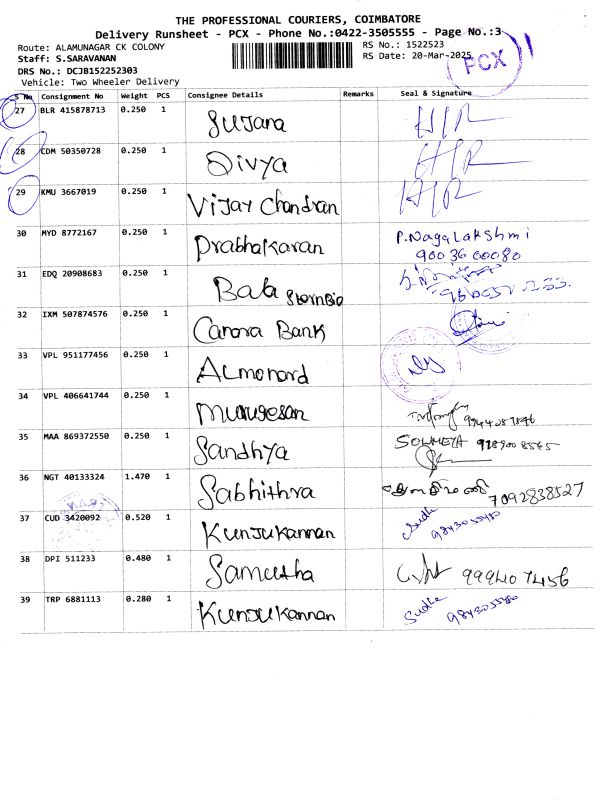 THE PROFESSIONAL COURIERS, COIMBATORE
Delivery Runsheet - PCX - Phone No.:0422-3505555 - Page No.:3
Route: ALAMUNAGAR CK COLONY RS No.: 1522523
Staff: S.SARAVANAN RS Date: 20-Mar-2025
PCX
DRS No.: DCJB152252303
Vehicle: Two Wheeler Delivery
S No Consignment No Weight PCS Consignee Details Remarks Seal & Signature
27 BLR 415878713 0.250 1 Sujana H/R
28 CDM 50350728 0.250 1 Divya H/R
29 KMU 3667019 0.250 1 Vijay Chandran H/R
30 MYD 8772167 0.250 1 Prabhakaran P.Nagalakshmi
90036 00080
31 EDQ 20908683 0.250 1 Bala
32 IXM 507874576 0.250 1 Canara Bank
33 VPL 951177456 0.250 1 Almonard
34 VPL 406641744 0.250 1 Murugesan
35 MAA 869372550 0.250 1 Sandhya SOWMEYA 9789008565
36 NGT 40133324 1.470 1 Sabhithra 7092838527
37 CUD 3420092 0.520 1 Kunjukannan Sudha
38 DPI 511233 0.480 1 Sameutha 999407456
39 TRP 6881113 0.280 1 Kunjukannan Sudha